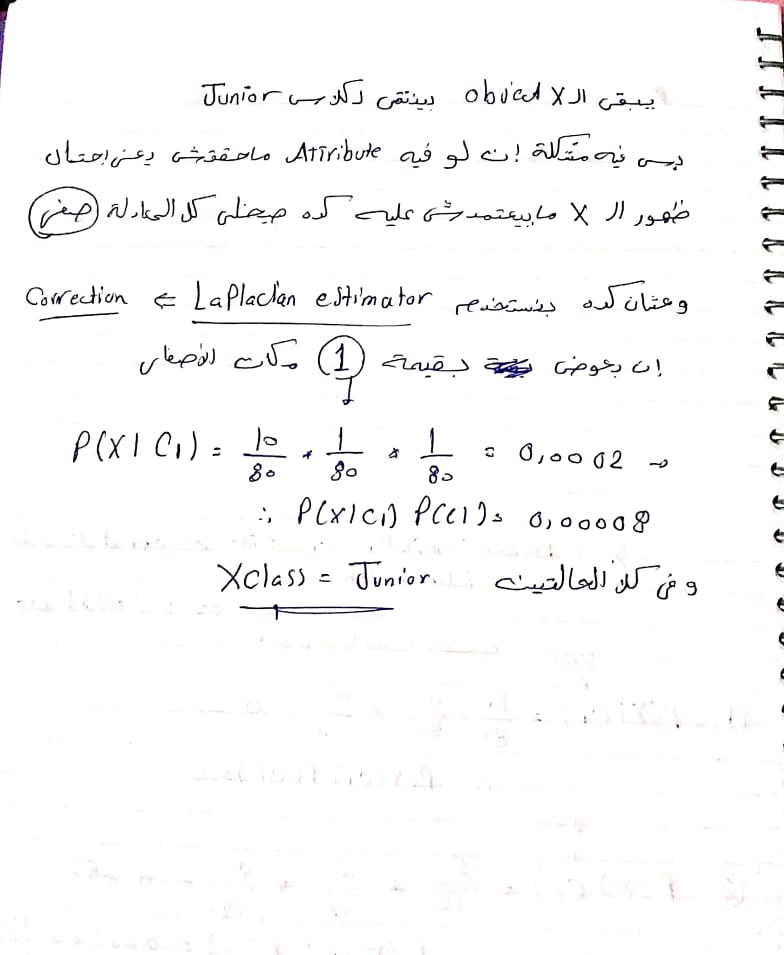 يبقى الـ object X بينتمى لكلاس Junior
بس فيه مشكلة إن لو فيه Attribute ماحققتش يعنى احتمال
ظهور الـ X مابيعتمدش عليه كده هيخلى كل المعادلة صفر
وعشان كده بنستخدم Laplacian estimator ⇐ Correction
إن بعوض بقيمة 1 مكان الأصفار
P(X | C1) = 10/80 * 1/80 * 1/80 = 0,0002 →
∴ P(X|C1) P(C1) = 0,00008
وفى كلا الحالتين Xclass = Junior.